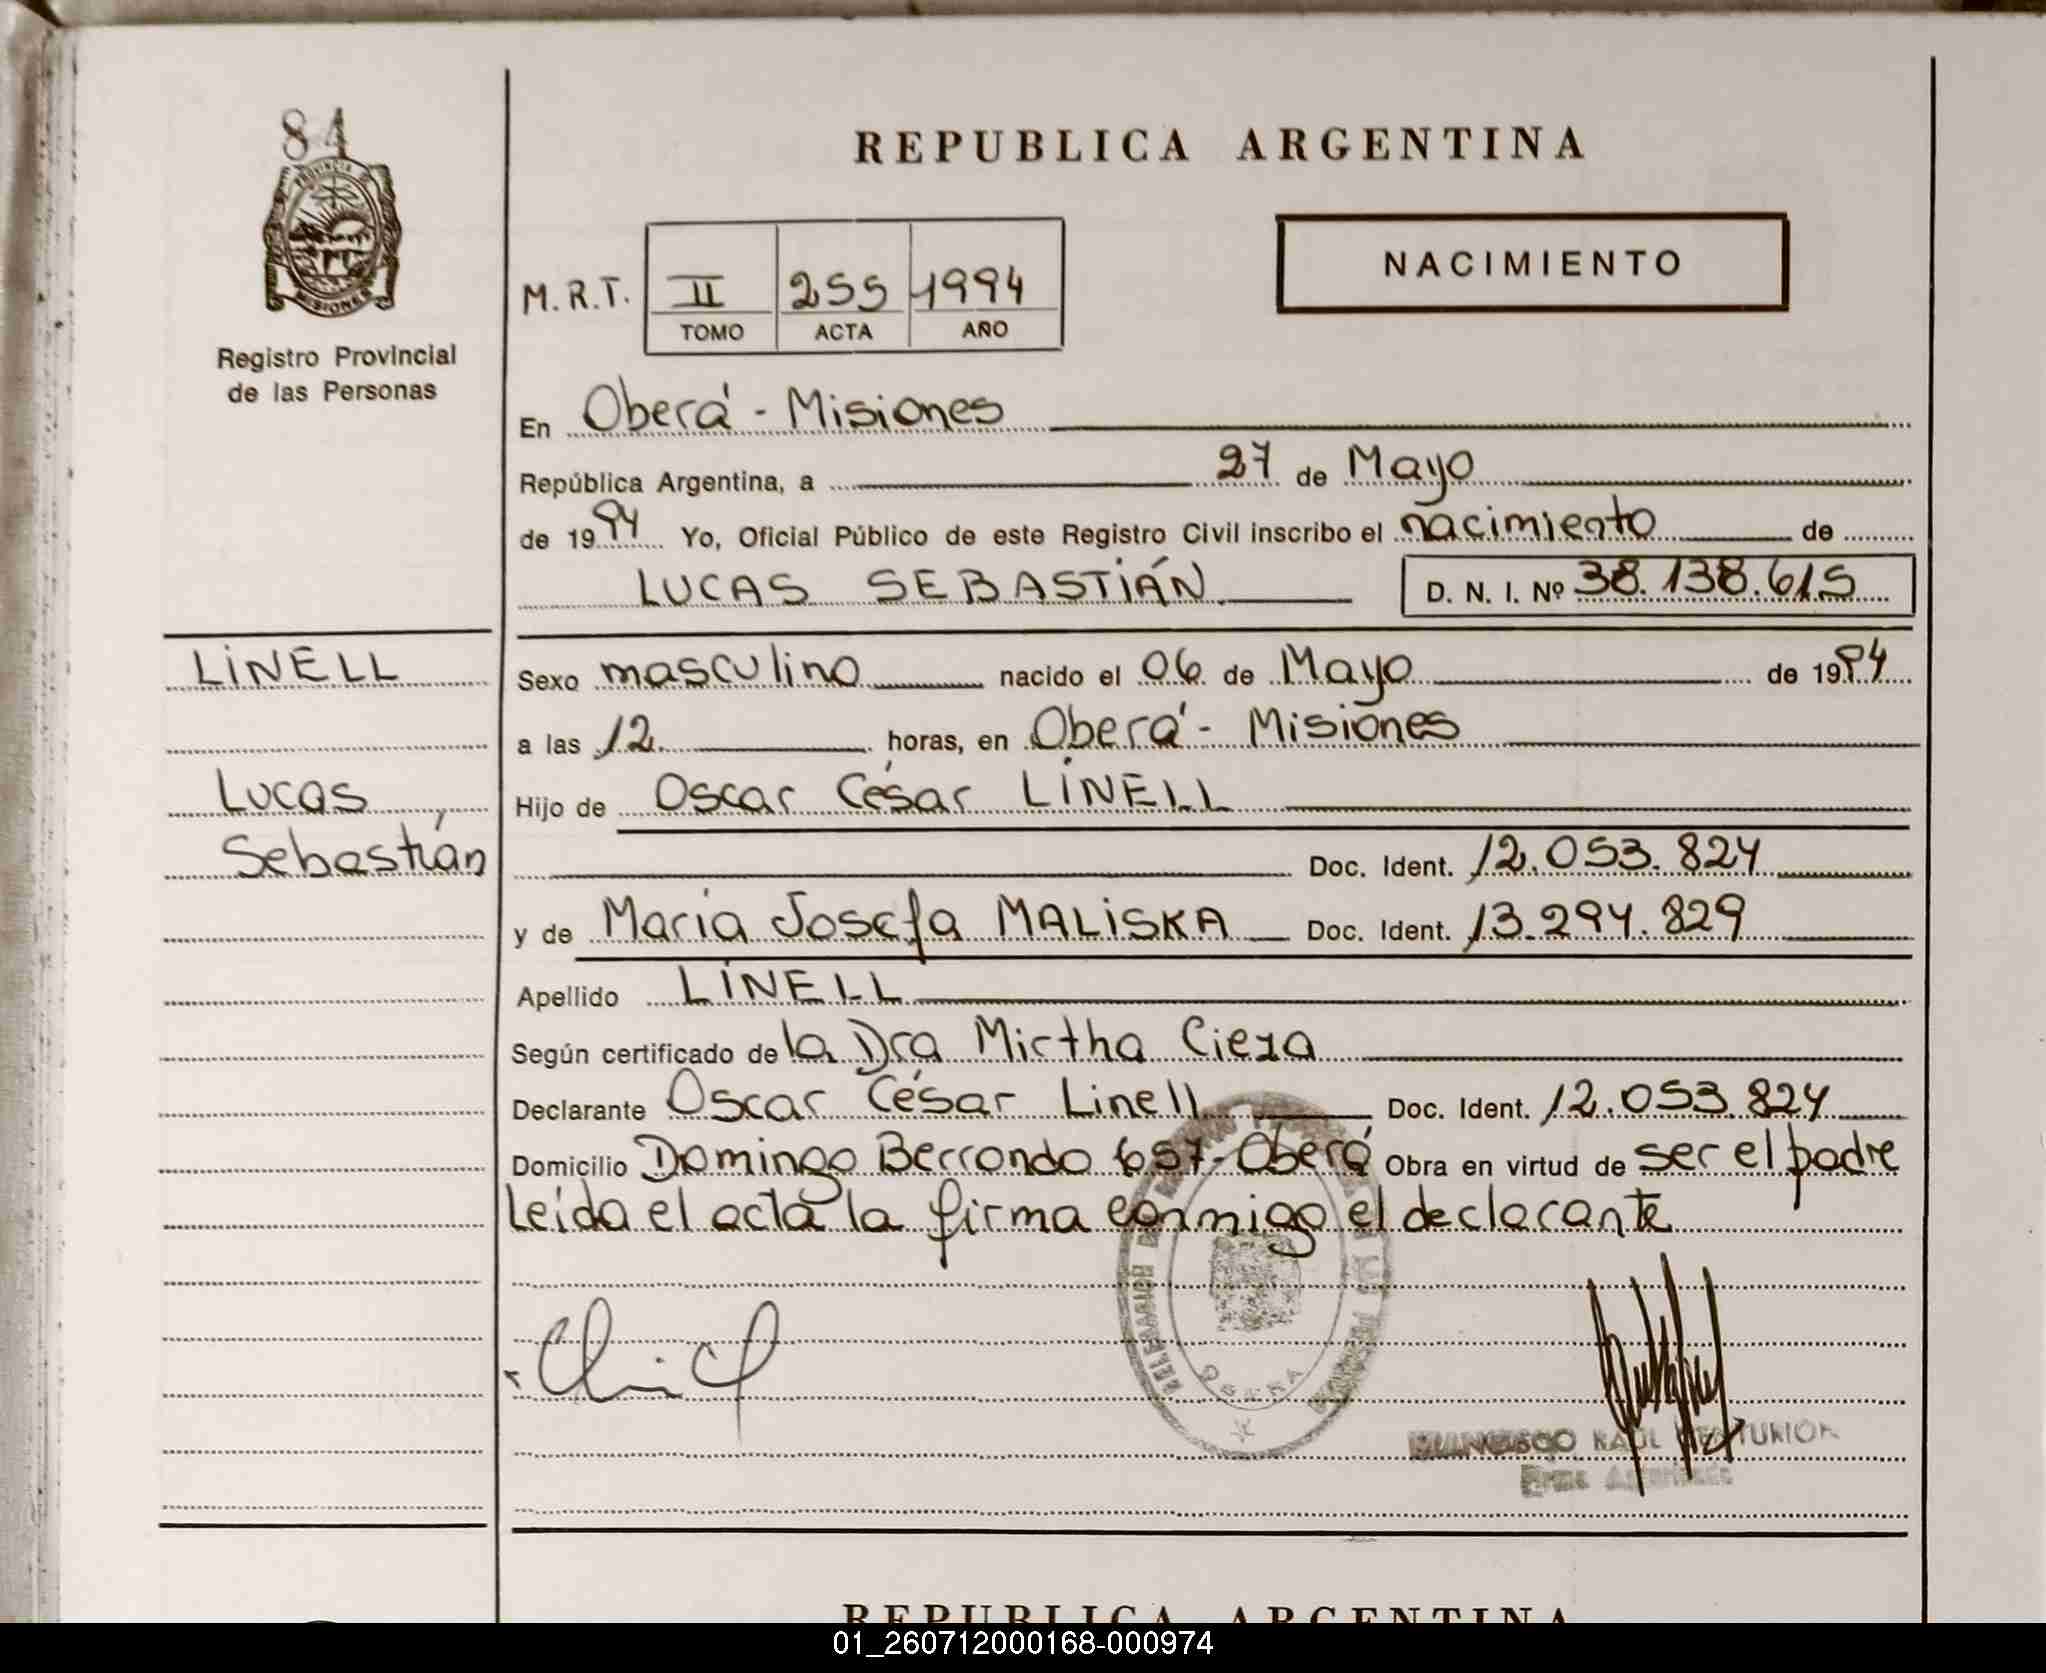 84
PROVINCIA DE
MISIONES
Registro Provincial
de las Personas
REPUBLICA ARGENTINA
NACIMIENTO
M.R.T. II 255 1994
TOMO ACTA AÑO
En Oberá - Misiones
República Argentina, a 27 de Mayo
de 1994 Yo, Oficial Público de este Registro Civil inscribo el nacimiento de
LUCAS SEBASTIÁN D. N. I. Nº 38.138.615
LINELL
Lucas
Sebastián
Sexo masculino nacido el 06 de Mayo de 1994
a las 12 horas, en Oberá - Misiones
Hijo de Oscar César LINELL
Doc. Ident. 12.053.824
y de Maria Josefa MALISKA Doc. Ident. 13.294.829
Apellido LINELL
Según certificado de la Dra Mirtha Cieza
Declarante Oscar César Linell Doc. Ident. 12.053.824
Domicilio Domingo Berrondo 657-Oberá Obra en virtud de ser el padre
Leída el acta la firma conmigo el declarante
OBERA
RAUL CENTURION
Firma Autorizada
REPUBLICA ARGENTINA
01_260712000168-000974